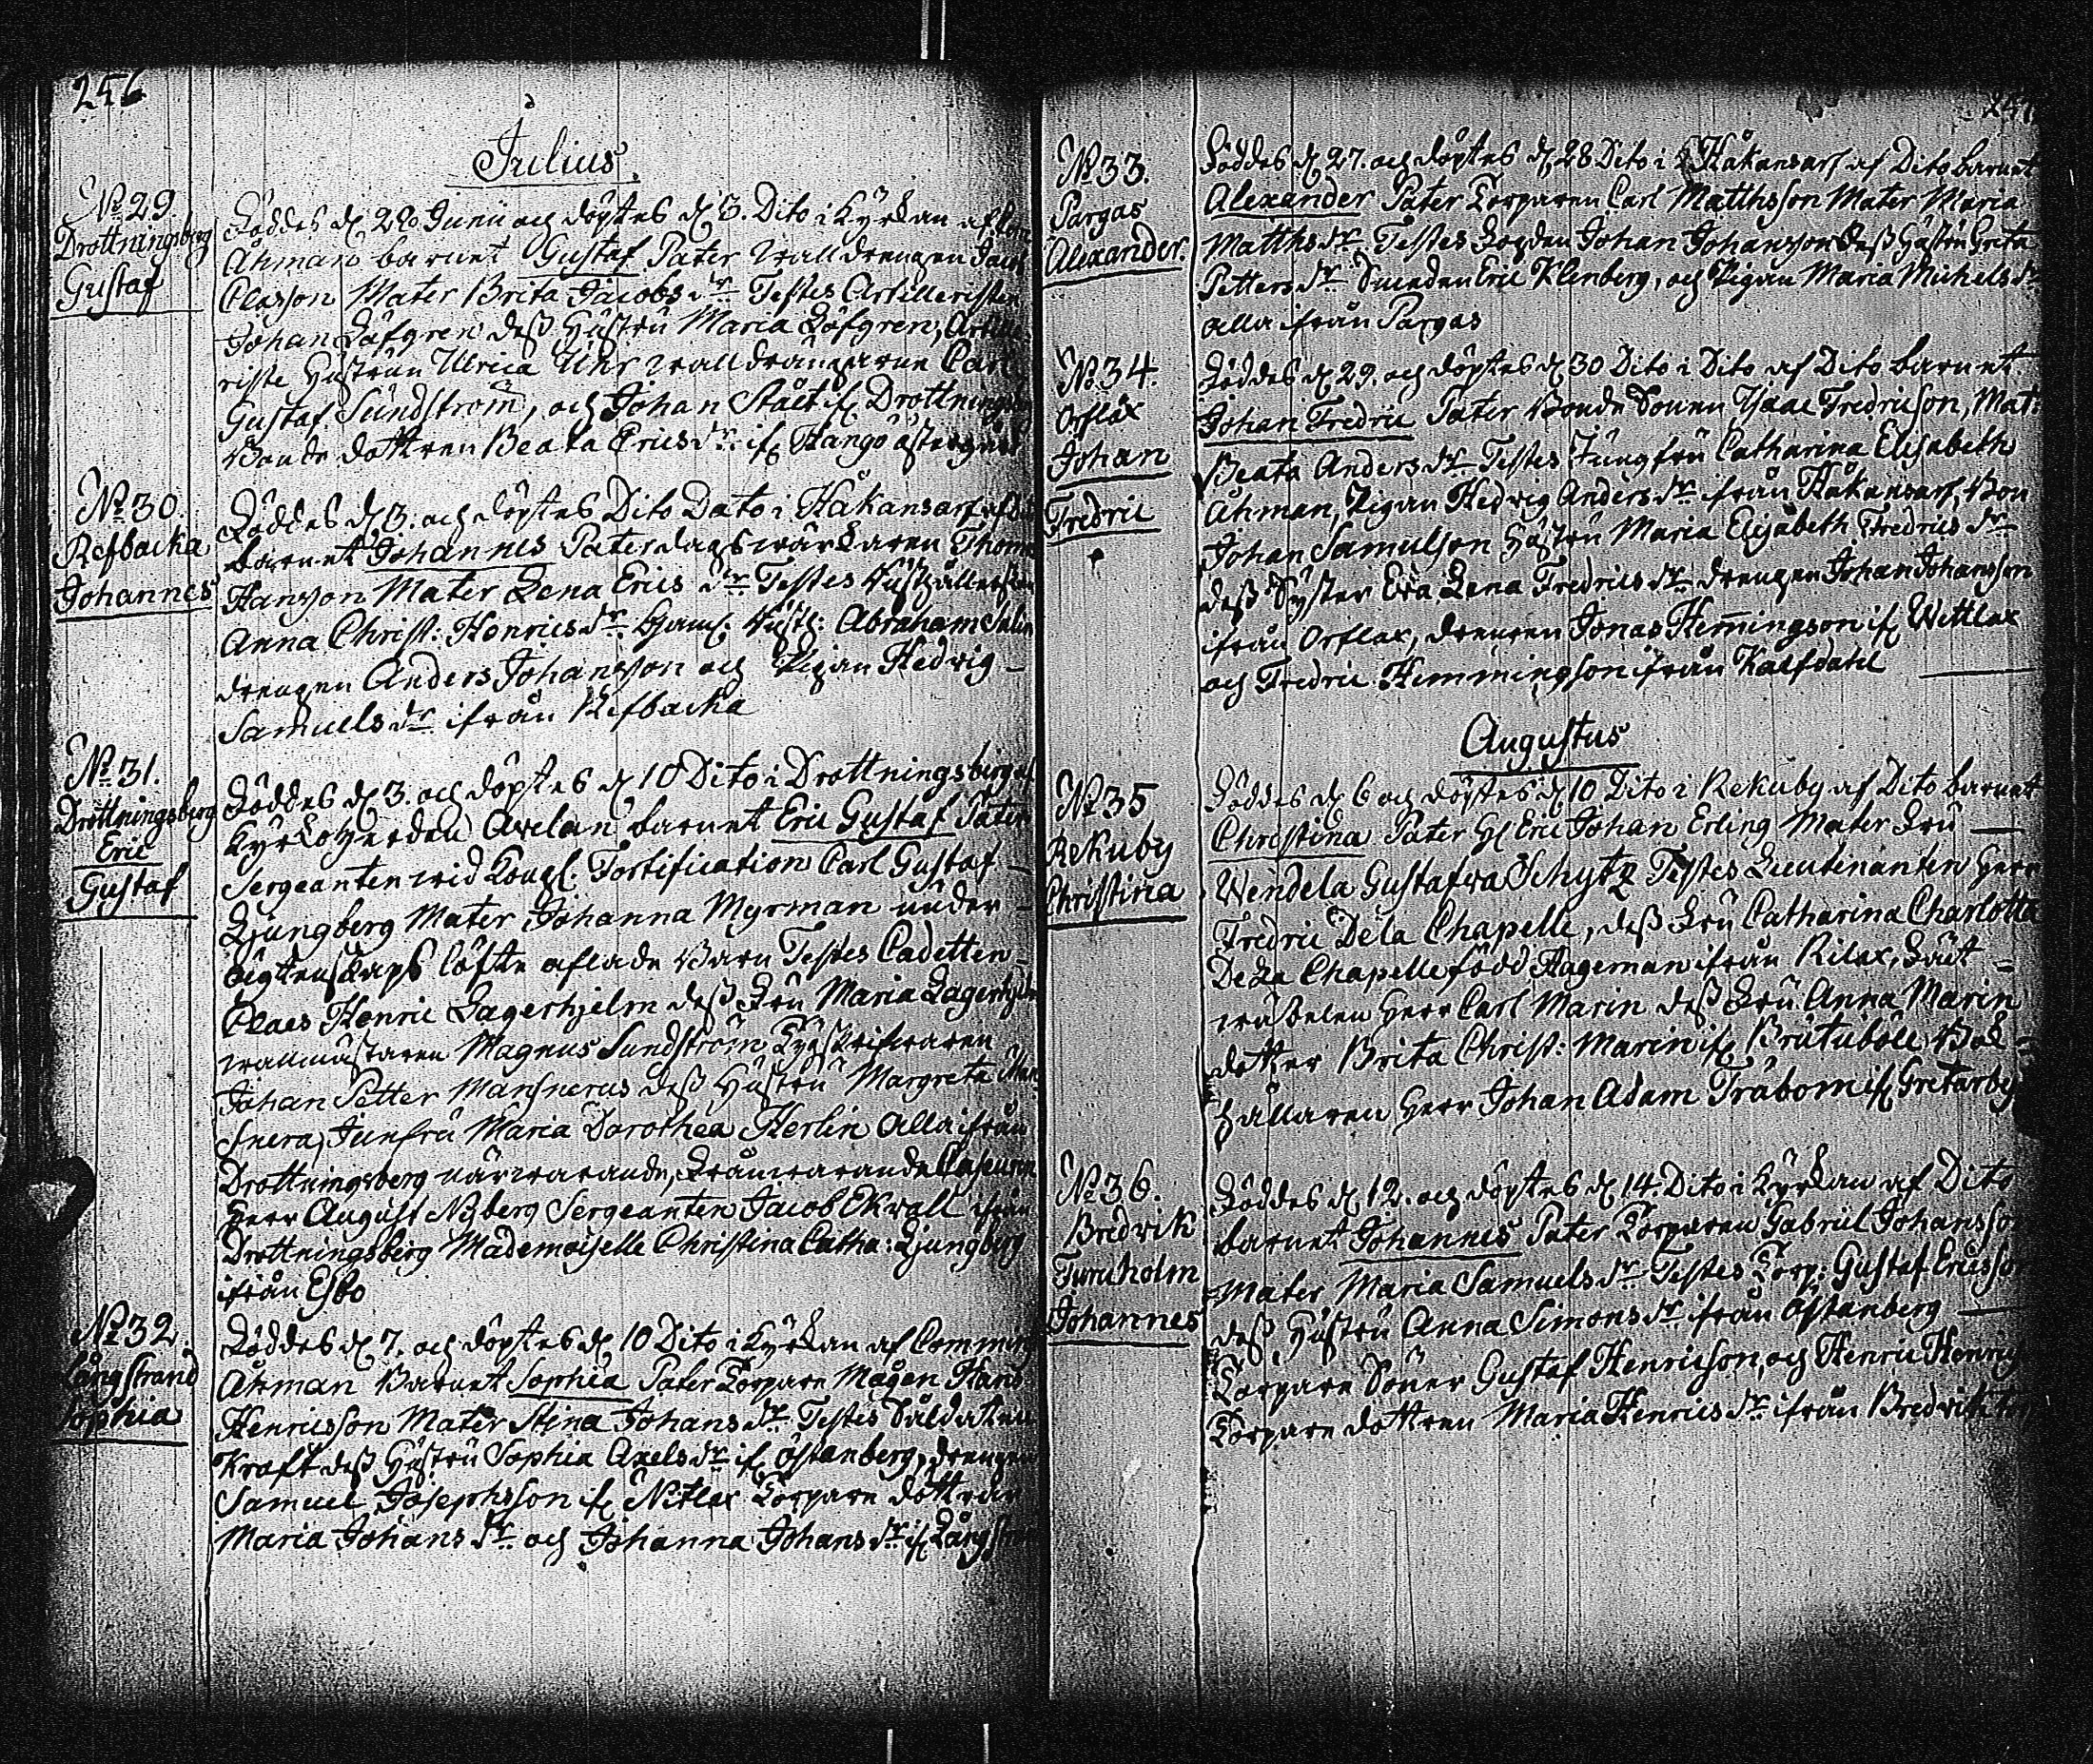 256
Julius
No 29.
Drottningsberg
Gustaf
Föddes d. 22 Junii och döptes d. 3. Dito i Kyrkan af Com
Åhman barnet Gustaf Pater Walldrengen Jacob
Classon Mater Brita Jacobs dr Testes Artilleristen
Johan Löfgren dess Hustru Maria Löfgren, Artille
riste Hustrun Ulrica Uhr walldrängarne Carl
Gustaf Sundström, och Johan Stålt if. Drottningsberg
Bonde dottren Beata Erics dr. if. Hangö östergård
No 30.
Refbacka
Johannes
Föddes d. 3. och döptes Dito Dato i Håkansarf af Dito
barnet Johannes Pater dagswärkaren Thomas
Hansson Mater Lena Erics dr Testes Hushållerskan
Anna Christ: Henrics dr
drengen Anders Johansson och Pigan Hedvig
Samuels dr ifrån Refbacka
No 31.
Drottningsberg
Eric
Gustaf
Föddes d. 3. och döptes d. 10 Dito i Drottningsberg af
Kyrkoherden Avelan barnet Eric Gustaf Pater
Sergeanten wid Kongl. Fortification Carl Gustaf
Ljungberg Mater Johanna Myrman under
ägtenskaps löfte aflade Barn Testes Cadetten
Claes Henric Lagerhjelm dess Fru Maria Lagerhjelm
wallmästaren Magnus Sundström
Johan Petter Marsnerus dess Hustru Margreta Mar
snera, Junfru Maria Dorothea Herlin alla ifrån
Drottningsberg närwarande, Frånwarande
Herr August Nyberg Sergeanten Jacob Ekwall ifrån
Drottningsberg Mademoiselle Christina Catha: Ljungberg
ifrån Esbo
No 32.
Långstrand
Sophia
Föddes d. 7. och döptes d. 10 Dito i Kyrkan af Comminist
Åhman Barnet Sophia Pater Torpare Mågen Hans
Henricsson Mater Stina Johans dr Testes Såldaten
Kraft dess Hustru Sophia Axels dr if. Östanberg, drengen
Samuel Josephsson if. Nitlax Torpare döttrar
Maria Johans dr och Johanna Johans dr if. Långstrand
257
No 33.
Pargas
Alexander.
Föddes d. 27. och döptes d. 28 Dito i Håkansarf af Dito barnet
Alexander Pater Torparen Carl Matthsson Mater Maria
Matths dr. Testes Bonden Johan Johansson dess Hustru Greta
Petters dr Smeden Eric Klenberg, och Pigan Maria Michels dr
alla ifrån Pargas
No 34.
Orflax
Johan
Fredric
Föddes d. 29. och döptes d. 30 Dito i Dito af Dito barnet
Johan Fredric Pater Bonde Sonen Isaac Fredricson, Mat:
Beata Anders dr Testes Jungfru Catharina Elisabeth
Åhman, Pigan Hedvig Anders dr ifrån Håkansarf, Bon
Johan Samulson Hustru Maria Elisabeth Fredrics dr
dess Syster Eva Lena Fredrics dr drengen Johan Johansson
ifrån Orflax, drengen Jonas Hemmingson if. Wittlax
och Fredric Hemmingson ifrån Kalfdahl
Augustus
No 35
Rekuby
Christina
Föddes d. 6 och döptes d. 10 Dito i Rekuby af Dito barnet
Christina Pater H. Eric Johan Erling Mater Fru
Wendela Gustafwa Schytz Testes Lieutinanten Herr
Fredric De la Chapelle, dess Fru Catharina Charlotta
De La Chapelle född Hageman ifrån Rilax, Fäut
wäbelen Herr Carl Marin dess Fru Anna Marin
dotter Brita Christ: Marin if. Brutuböle, Bok
hållaren Herr Johan Adam Träbom if. Gretarby
No 36.
Bredvik
Furuholm
Johannes
Föddes d. 12. och döptes d. 14. Dito i Kyrkan af Dito
barnet Johannes Pater Torparen Gabriel Johansson
Mater Maria Samuels dr Testes Torp: Gustaf Ericsson
dess Hustru Anna Simons dr ifrån Östanberg
Torpare Söner Gustaf Henricson, och Henric Henrics
Torpare dottren Maria Henrics dr ifrån Bredvik